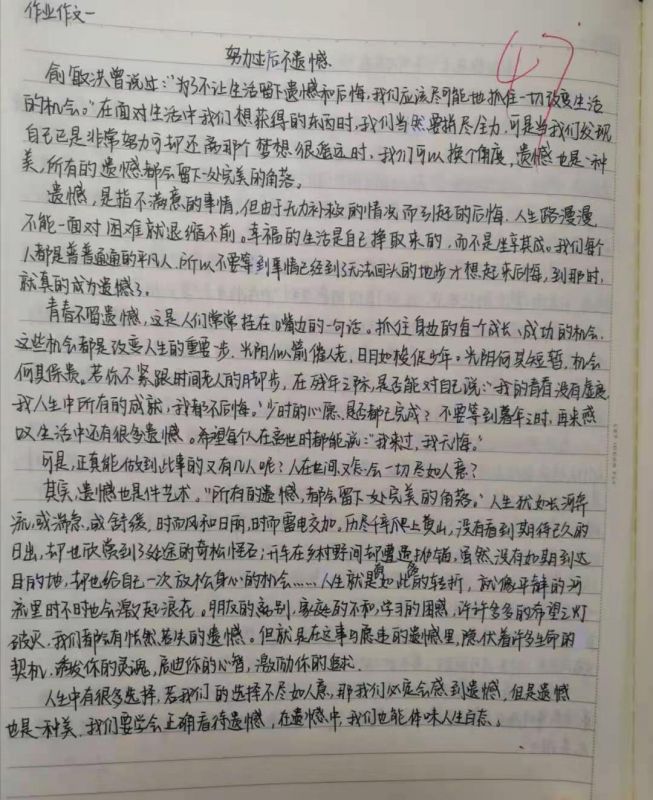 作业作文一
47
努力过后不遗憾
俞敏洪曾说过："为了不让生活留下遗憾和后悔,我们应该尽可能地抓住一切改变生活
的机会。"在面对生活中我们想获得的东西时,我们当然要捎尽全力,可是当我们发现
自己已是非常努力可却还离那个梦想很遥远时,我们可以换个角度,遗憾也是一种
美,所有的遗憾都会留下一处完美的角落。
遗憾,是指不满意的事情,但由于无力补救的情况而引起的后悔,人生路漫漫
不能一面对困难就退缩不前。幸福的生活是自己挣取来的,而不是坐享其成。我们每个
人都是普普通通的平凡人,所以不要等到事情已经到了无法回头的地步才想起来后悔,到那时,
就真的成为遗憾了。
青春不留遗憾,这是人们常常挂在嘴边的一句话。抓住身边的每个成长、成功的机会,
这些机会都是改变人生的重要一步,光阴似箭催人老,日月如梭促少年。光阴何其短暂,机会
何其保贵。若你不紧跟时间老人的脚步,在残年之际,是否能对自己说:"我的青春没有虚度
我人生中所有的成就,我都不后悔。"少时的心愿,是否都已完成?不要等到暮年之时,再来感
叹生活中还有很多遗憾。希望每个人在离世时都能说:"我来过,我无悔。"
可是,正真能做到此事的又有几人呢?人在世间,又怎会一切尽如人意?
其实,遗憾也是件艺术。"所有的遗憾,都会留下一处完美的角落。"人生犹如长河奔
流,或湍急,或舒缓,时而风和日丽,时而雷电交加。历尽千辛爬上黄山,没有看到期待已久的
日出,却也欣赏到了沿途的奇松怪石;开车在乡村野间却遭遇抛锚,虽然没有如期到达
目的地,却也给自己一次放松身心的机会……人生就是有如此多的转折,就像平静的河
流里时不时也会激起浪花。朋友的离别,家庭的不和,学习的困惑,许许多多的希望之灯
破灭,我们都会有怅然若失的遗憾。但就是在这事与愿违的遗憾里,隐伏着许多生命的
契机,诱发你的灵魂,启迪你的心智,激励你的追求.
人生中有很多选择,若我们的选择不尽如人意,那我们必定会感到遗憾,但是遗憾
也是一种美.我们要学会正确看待遗憾,在遗憾中,我们也能体味人生百态。